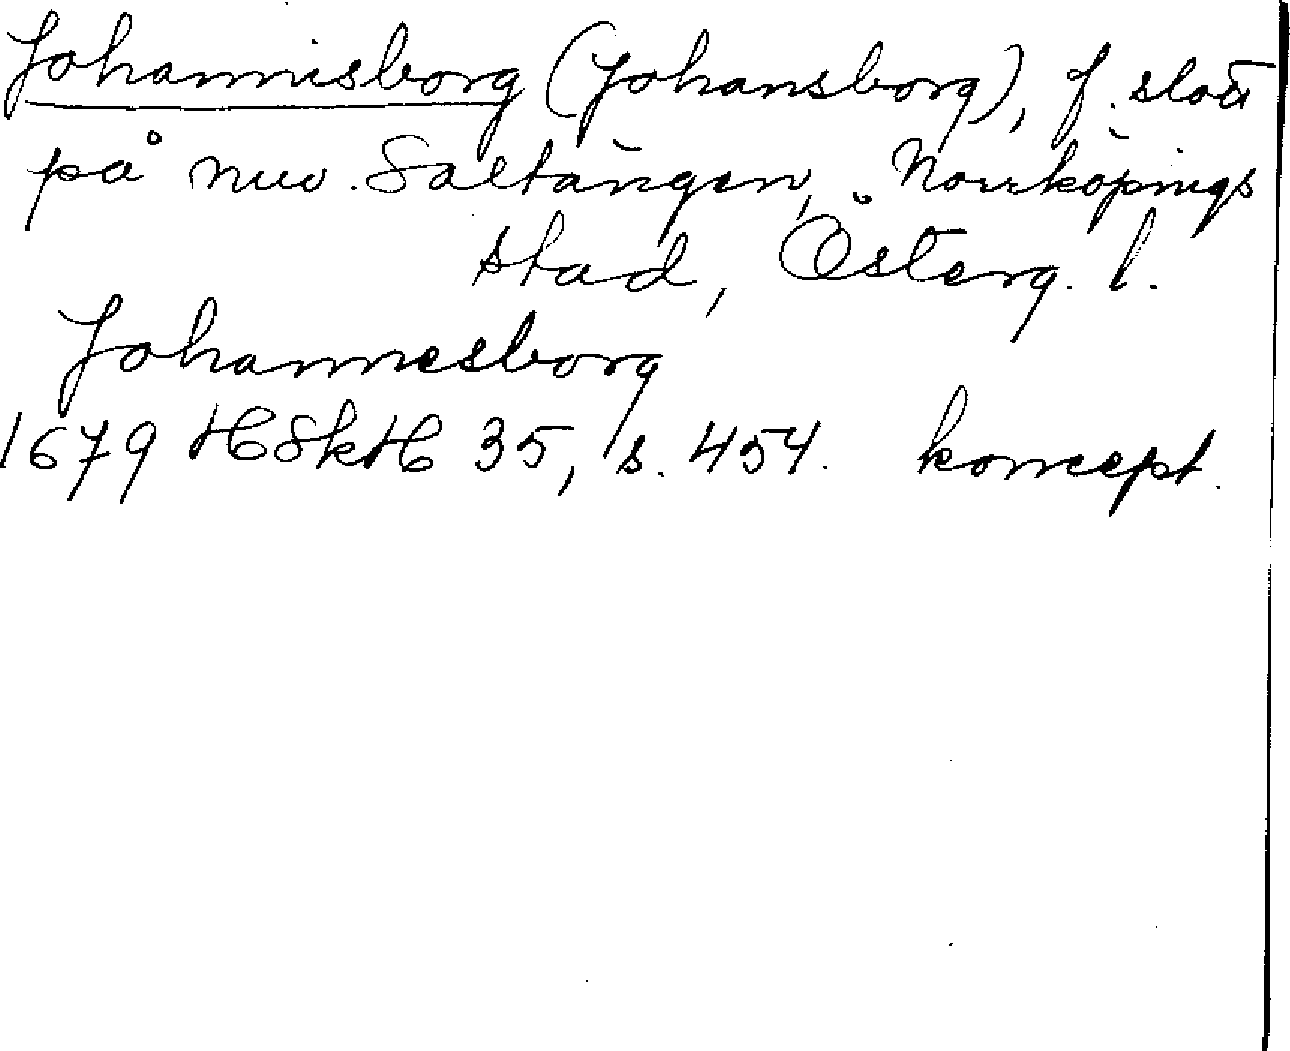 Johannisborg (Johansborg), f. slott
på nuv. Saltängen, Norrköpings
stad, Österg. l.
Johannesborg
1679 HSkH 35, s. 454. koncept.